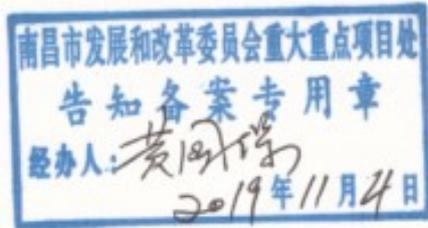 南昌市发展和改革委员会重大重点项目处
告知备案专用章
经办人：黄国保
2019年11月4日